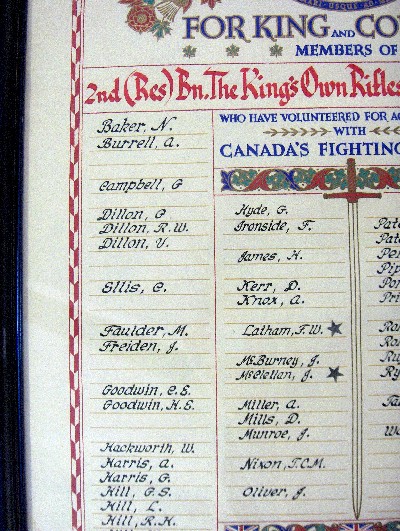 FOR KING AND
MEMBERS OF
2nd (Res) Bn. The King's Own Rifles
WHO HAVE VOLUNTEERED FOR
WITH
CANADA'S FIGHTING
Baker, N.
Burrell, A.
Campbell, G
Dillon, G
Dillon, R.W.
Dillon, V.
Ellis, C.
Faulder, M.
Freiden, J.
Goodwin, C.S.
Goodwin, H.S.
Hackworth, W.
Harris, A.
Harris, G.
Hill, G.S.
Hill, L.
Hill, R.H.
Hyde, G.
Ironside, F.
James, H.
Kerr, D.
Knox, A.
Latham, F.W.
McBurney, J.
McClellan, J.
Miller, A.
Mills, D.
Munroe, J.
Nixon, T.C.M.
Oliver, J.